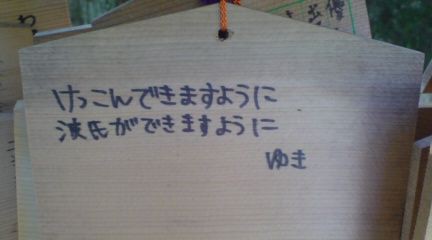 けっこんできますように
彼氏ができますように
ゆき